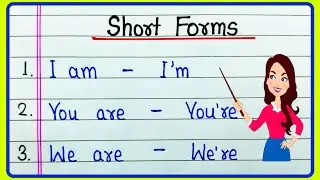 Short Forms
1. I am - I'm
2. You are - You're
3. We are - We're